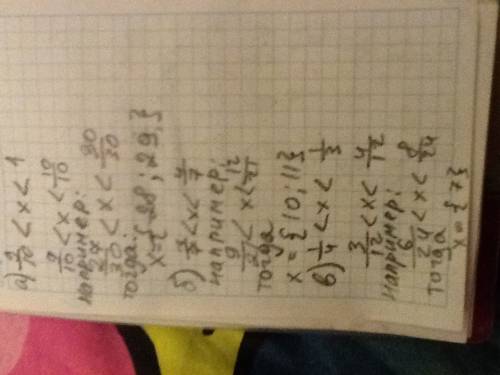 а) 9/10 < x < 1
9/10 < x < 10/10
например:
27/30 < x < 30/30
тогда:
x = { 28 ; 29,}
б) 3/7 < x < 4/7
например:
9/21 < x < 12/21
тогда
x = { 10; 11}
в) 1/4 < x < 1/3
3/12 < x < 4/12
например:
6/24 < x < 8/24
тогда
x = { 7 }